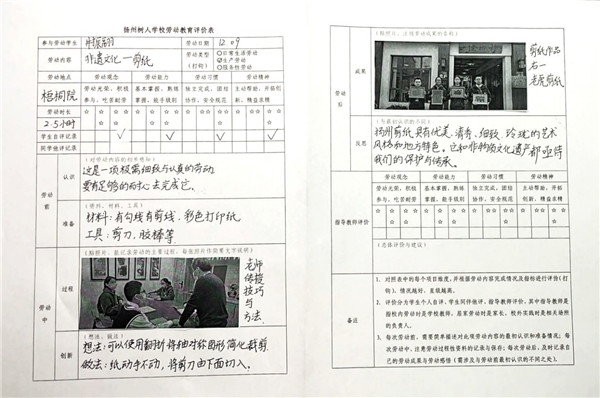 扬州树人学校劳动教育评价表
参与劳动学生
劳动日期
12.09
劳动内容
非遗文化—剪纸
劳动类型
(打钩)
○日常生活劳动
☑生产劳动
○服务性劳动
劳动地点
劳动观念
劳动能力
劳动习惯
劳动精神
梧桐院
劳动光荣,积极参与、吃苦耐劳
基本掌握,熟练掌握,能手级别
独立完成,团结协作,安全规范
主动帮助,开拓创新,精益求精
劳动时长
☆ ☆ ☆ ☆ ☆ ☆ ☆ ☆ ☆ ☆ ☆ ☆
2.5小时
☆ ☆ ☆ ☆ ☆ ☆ ☆ ☆
学生自评记录
✓ ✓ ✓ ✓
同学他评记录
劳动前
认识
(对劳动内容的初步感知)
这是一项极需细致与认真的劳动
要有足够的耐心去完成它。
准备
(资料、材料、工具)
材料:有勾线有剪线、彩色打印纸
工具:剪刀、胶棒等
劳动中
过程
老师
传授
技巧
与
方法.
创新
(想法、做法)
想法:可以使用翻折将轴对称图形简化裁剪
做法:纸动手不动,将剪刀由下面切入。
劳动后
成果
剪纸作品
右一
老虎剪纸
反思
(与最初认识的不同)
扬州剪纸具有优美、清秀、细致、玲珑的艺术
风格和地方特色。它和非物质文化遗产都亟待
我们的保护与传承。
指导教师评价
劳动观念
劳动能力
劳动习惯
劳动精神
劳动光荣,积极参与、吃苦耐劳
基本掌握,熟练掌握,能手级别
独立完成,团结协作,安全规范
主动帮助,开拓创新,精益求精
☆ ☆ ☆ ☆ ☆ ☆ ☆ ☆ ☆ ☆ ☆ ☆
☆ ☆ ☆ ☆ ☆ ☆ ☆ ☆
(总体评价与建议)
备注
1. 对照表中的每个项目维度,并根据劳动内容完成情况及指标进行评价(打
钩)。情况越好,星级越高。
2. 评价分为学生个人自评、学生同伴他评、指导教师评价。其中指导教师是
指校内劳动时是学校教师,居家劳动时是家长,校外实践时是相关场所
的负责人。
3. 每次劳动前,需要简单描述对此项劳动内容的最初认识和准备情况;每
次劳动中,注意劳动过程性资料的记录与保存;每次劳动后,及时记录自
己的劳动成果与劳动感悟(需涉及与劳动前最初认识的不同之处)。